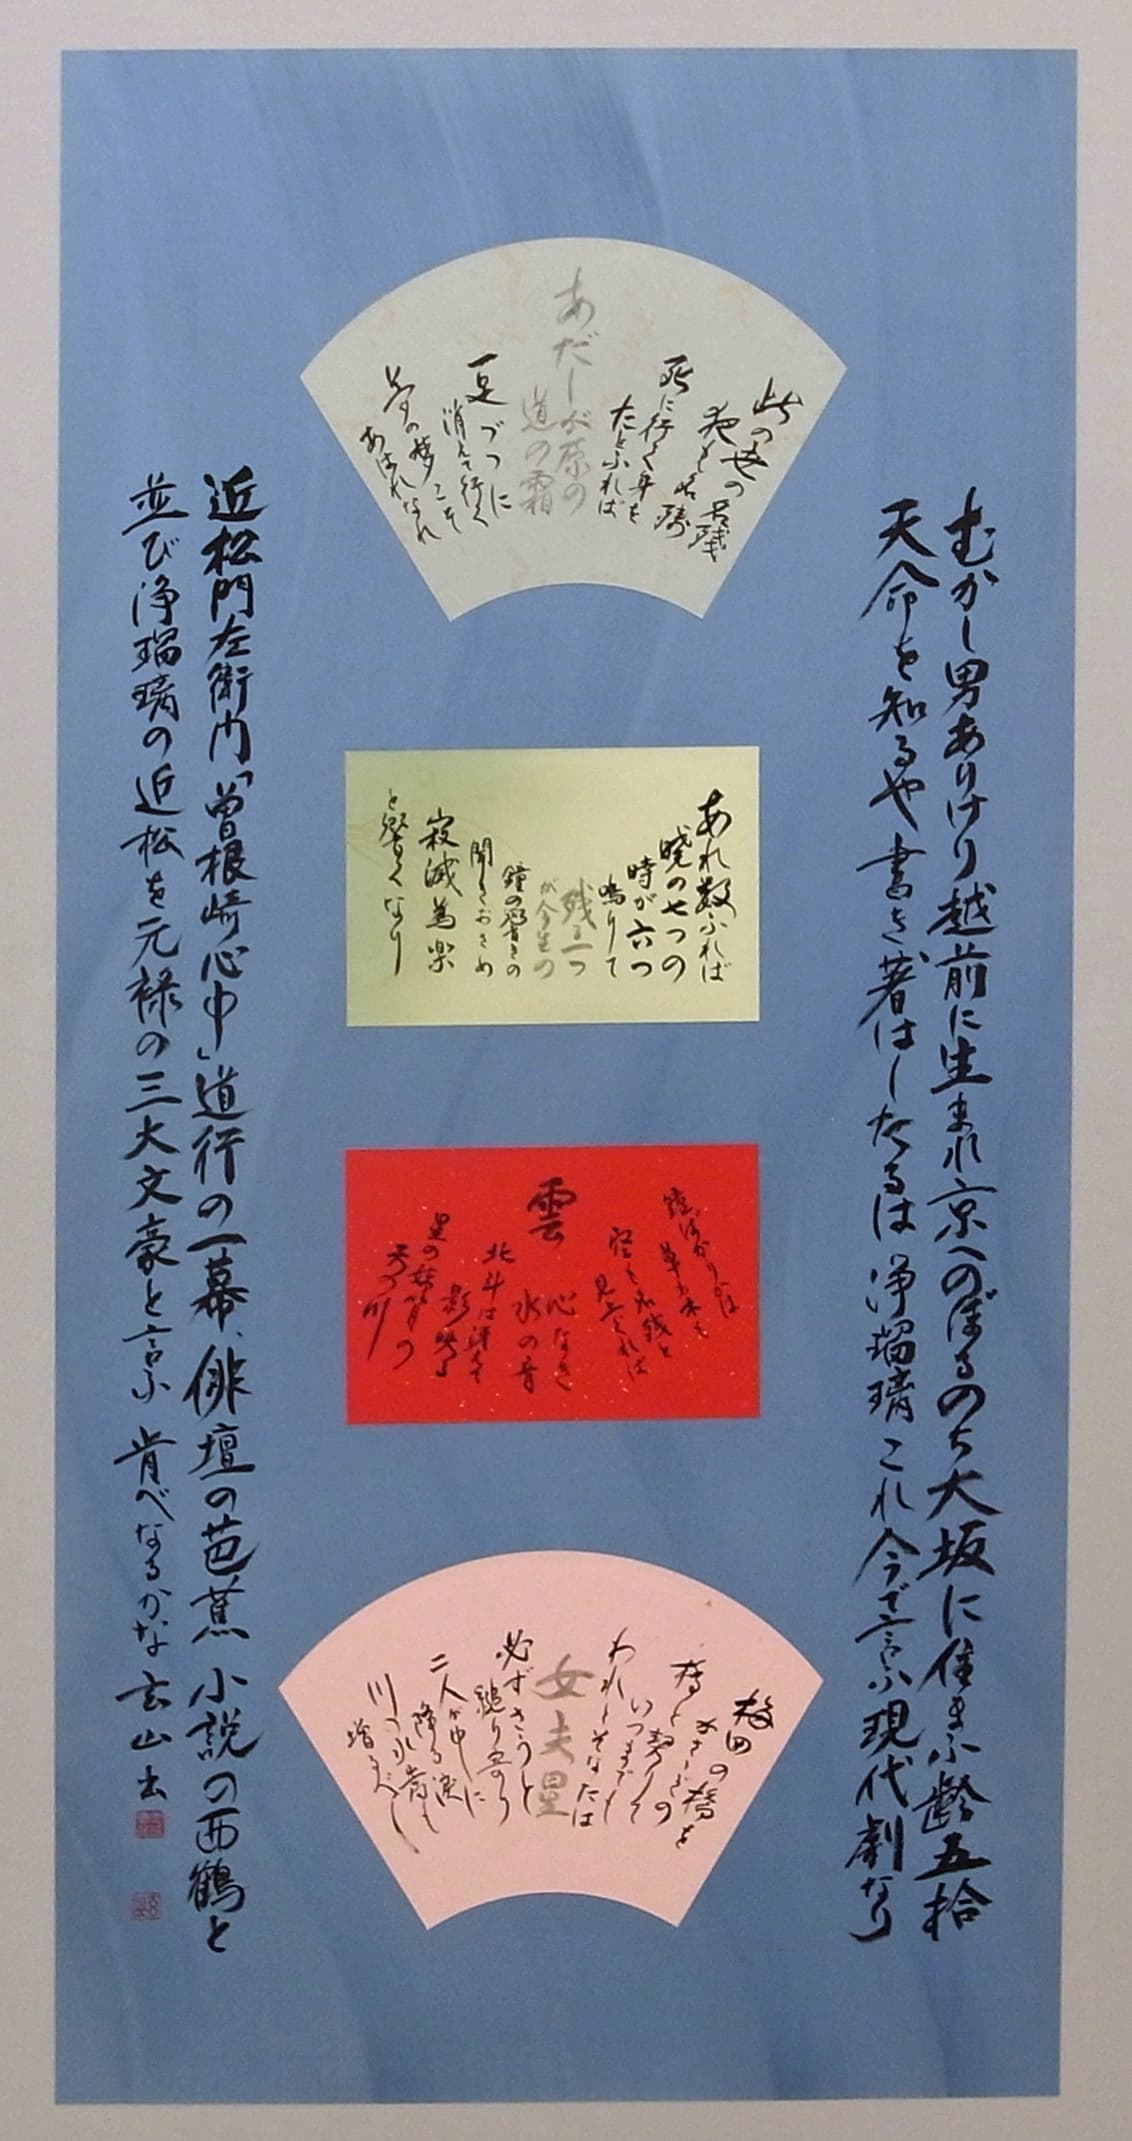 むかし男ありけり越前に生まれ京へのぼるのち大坂に住まふ齢五拾
天命を知るや書き著はしたるは浄瑠璃これ今で言ふ現代劇なり
此の世の名残
夜も名残
死に行く身を
たとふれば
あだしが原の
道の霜
一足づつに
消えて行く
夢の夢こそ
あはれなれ
あれ数ふれば
暁の七つの
時が六つ
鳴りて
残る一つ
が今生の
鐘の響きの
聞きおさめ
寂滅為楽
と響くなり
鐘ばかりかは
草も木も
空も名残と
見上ぐれば
雲
心なき
水の音
北斗は冴えて
影映る
星の妹背の
天の川
梅田の橋を
かささぎの
橋と契りて
いつまでも
われとそなたは
女夫星
必ずさうと
縋り寄り
二人が中に
降る涙
川の水嵩も
増さるべし
近松門左衛門「曽根崎心中」道行の一幕、俳壇の芭蕉 小説の西鶴と
並び浄瑠璃の近松を元禄の三大文豪と言ふ 肯べなるかな 玄山書